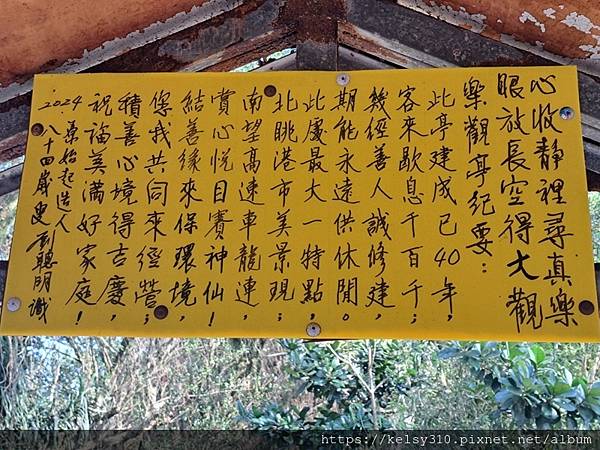 心收靜裡尋真樂
眼放長空得大觀
樂觀亭紀要：
此亭建成已40年，
客來歇息千百千；
幾經善人誠修建，
期能永遠供休閒。
此處最大一特點，
北眺港市美景現；
南望高速車龍連，
賞心悅目賽神仙！
結善緣來保環境，
您我共同來經營；
積善心境得吉慶，
祝福美滿好家庭！
2024 原始起造人
八十四歲叟 劉聰明識
https://kelsy310.pixnet.net/album